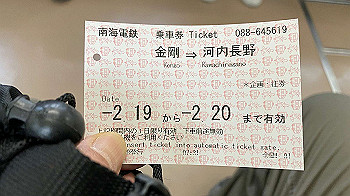 南海電鉄 乗車券 Ticket 088-645619
金剛 ⇒ 河内長野
Kongo Kawachinagano
*企画・往券
Date
-2. 19 から -2. 20 まで有効
の1日限り有効 下車前途無効
ください
insert ticket into automatic gate.